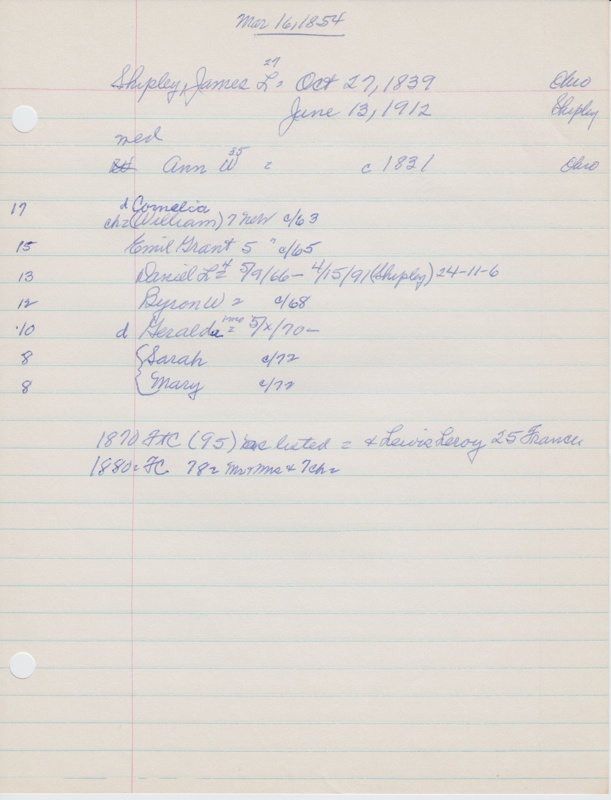 Mar 16, 1854
27
Shipley, James L = Oct 27, 1839 Ohio
June 13, 1912 Shipley
med
35
Ann W = c 1831 Ohio
17 d Cornelia
ch = (William) 7 New c/63
15 Emil Grant 5 " c/65
13 Daniel L = 4 5/9/66 - 4/15/91 (Shipley) 24-11-6
12 Byron W 2 c/68
10 d Geralda = 5/x/70 -
8 { Sarah c/72
8 { Mary c/72
1870 (95) as listed = + Lewis Leroy 25 France
1880 = FC 78 = Mr + Mrs + 7 ch =